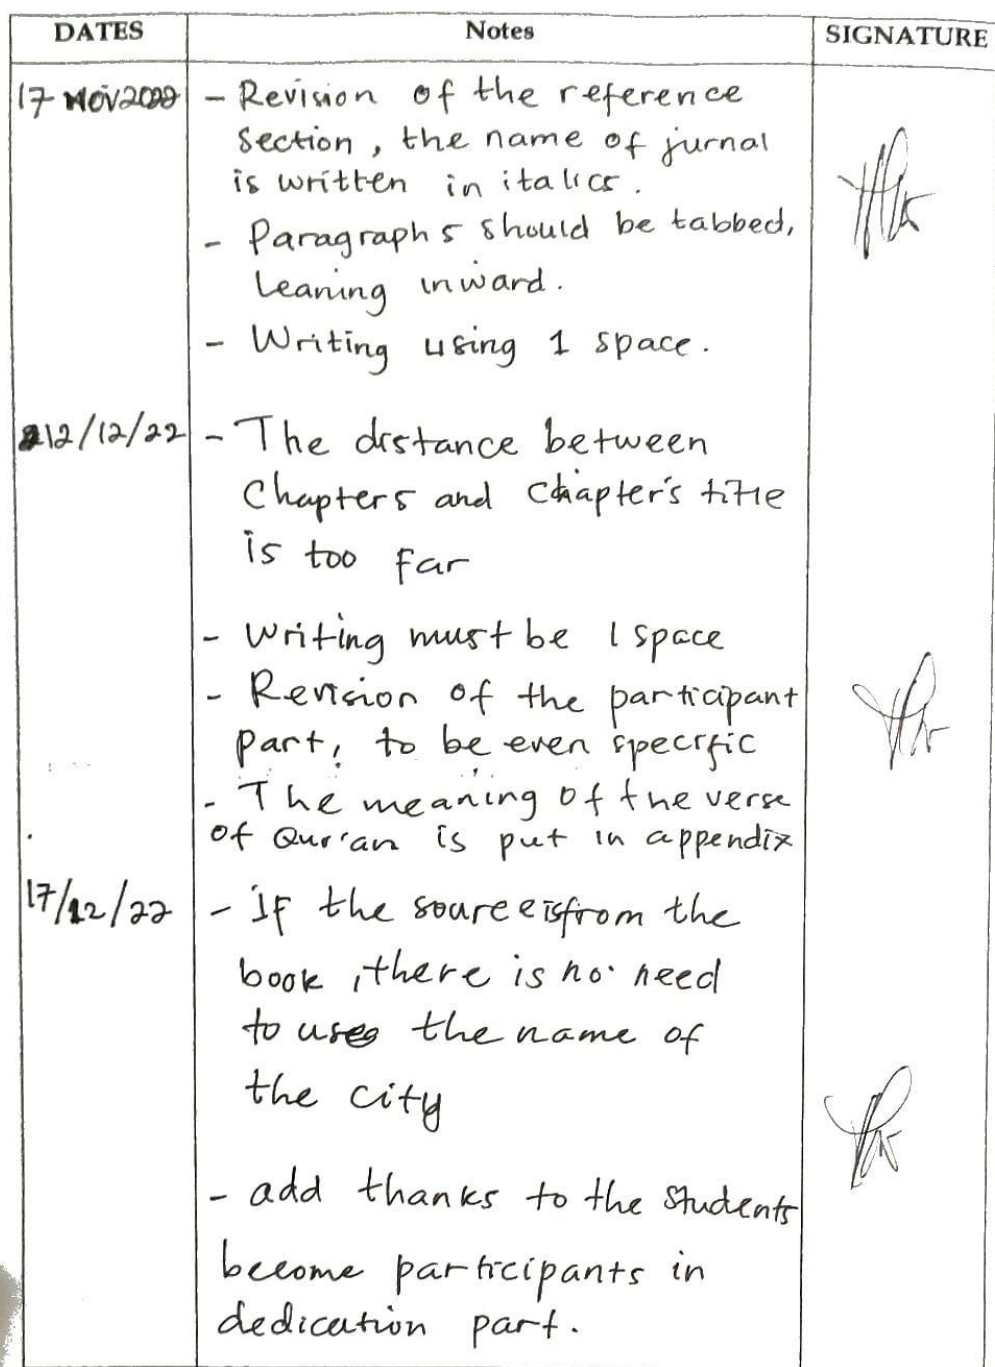 DATES Notes SIGNATURE
17 Nov 2022 - Revision of the reference
section, the name of jurnal
is written in italics.
- Paragraphs should be tabbed,
leaning inward.
- Writing using 1 space.
12/12/22 - The distance between
Chapters and Chapter's title
is too far
- Writing must be 1 space
- Revision of the participant
part, to be even specific
- The meaning of the verse
of Qur'an is put in appendix
17/12/22 - If the source is from the
book, there is no need
to use the name of
the city
- add thanks to the students
become participants in
dedication part.